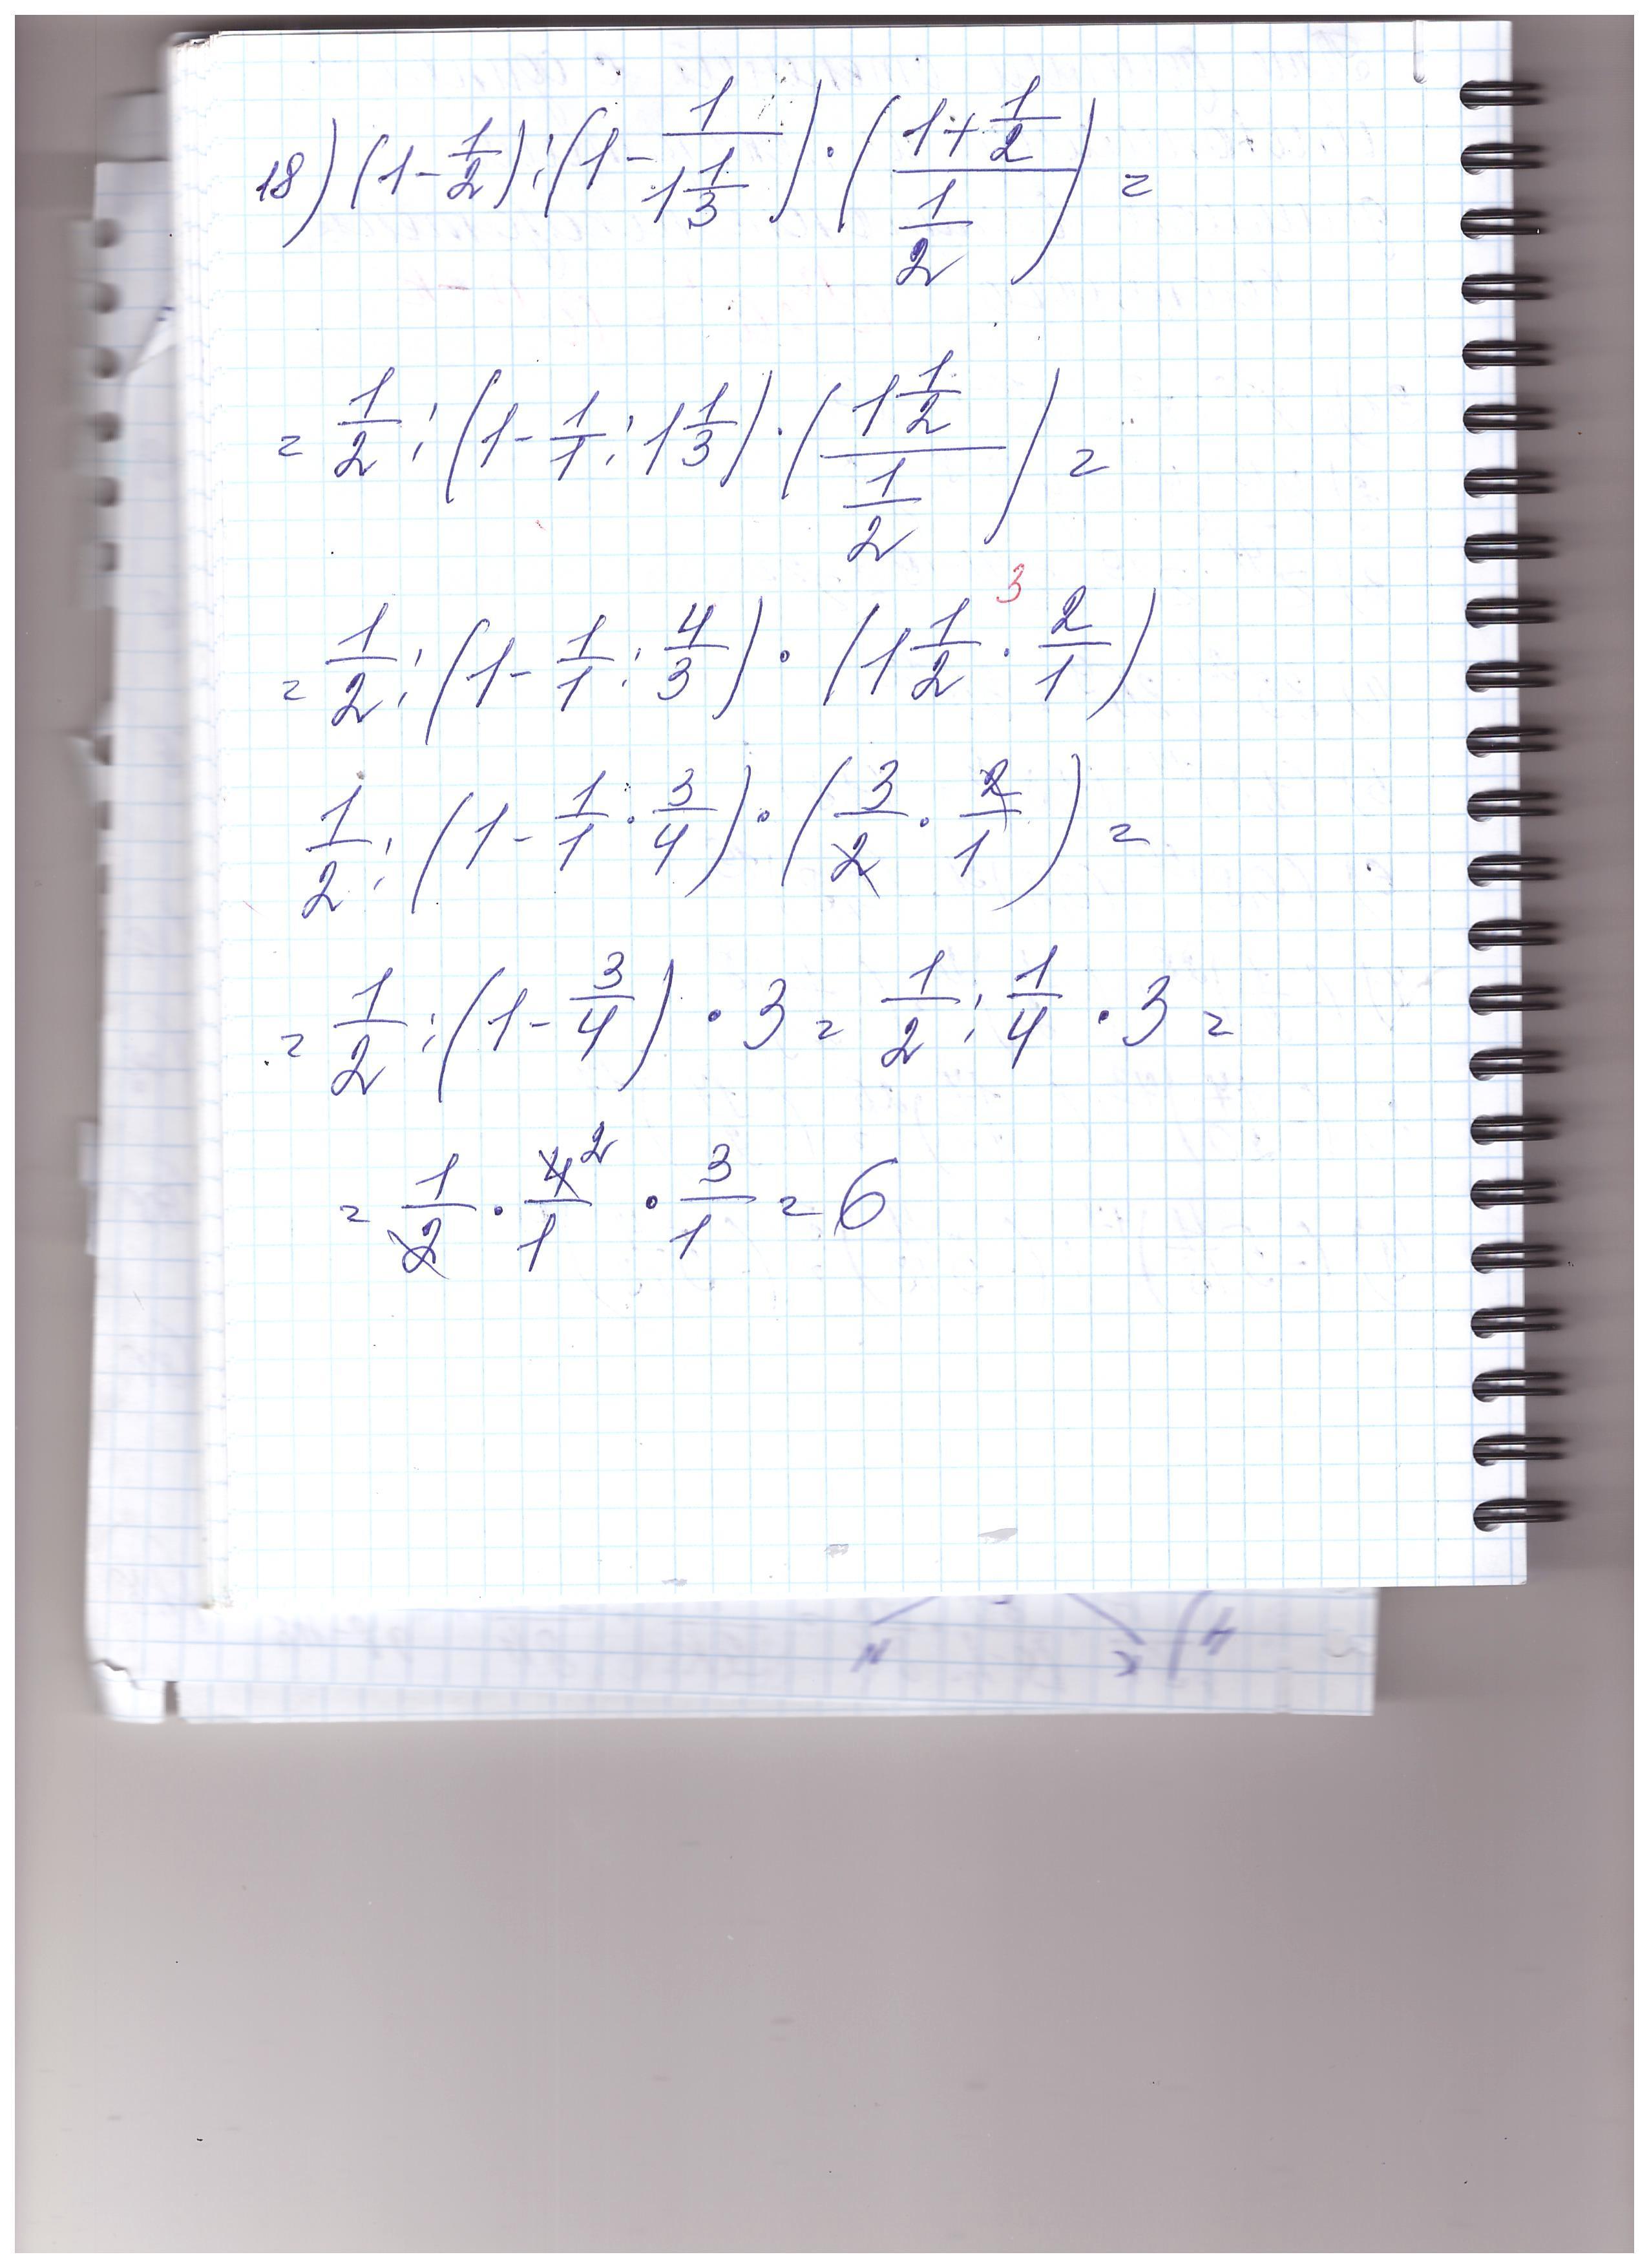 18) (1 - 1/2) : (1 - 1/(1 1/3)) · ((1 + 1/2)/(1/2)) =
= 1/2 : (1 - 1/1 : 1 1/3) · ((1 1/2)/(1/2)) =
3
= 1/2 : (1 - 1/1 : 4/3) · (1 1/2 · 2/1)
1/2 : (1 - 1/1 · 3/4) · (3/2 · 2/1) =
= 1/2 : (1 - 3/4) · 3 = 1/2 : 1/4 · 3 =
= 1/2 · 4²/1 · 3/1 = 6